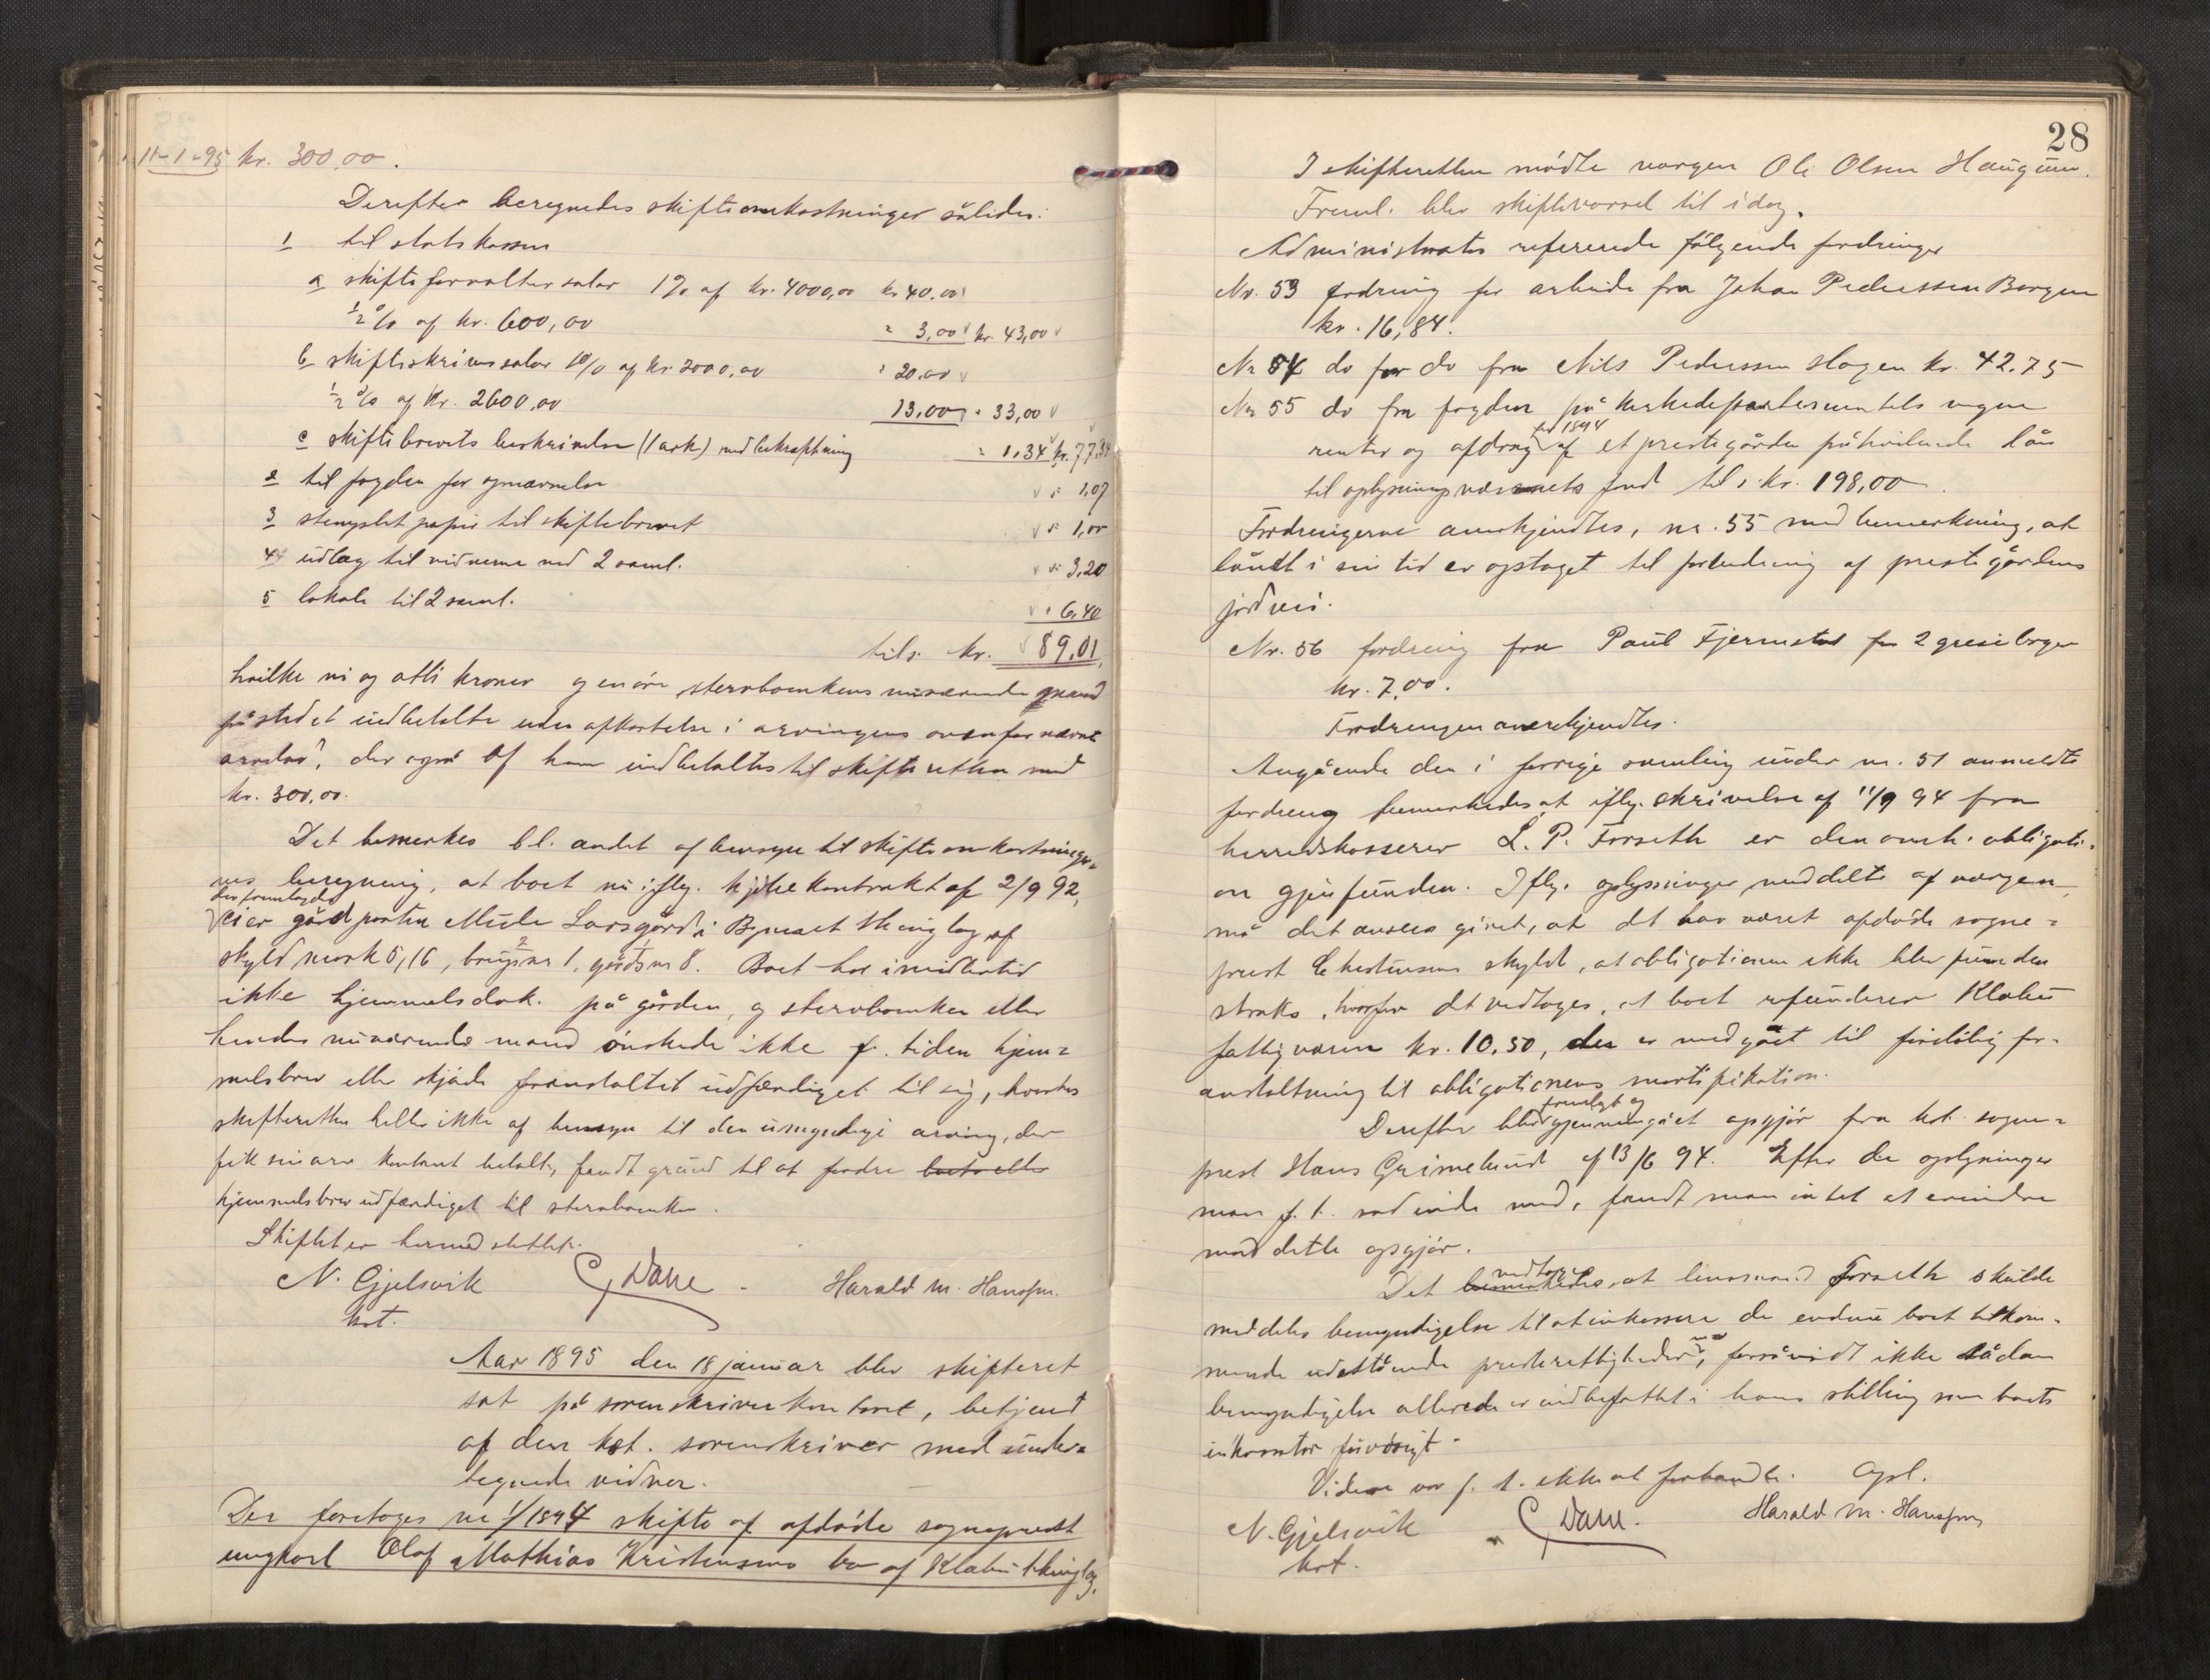 11-1-95 kr. 300,00.
Derefter beregnedes skifteomkostninger således:
1 til statskassen
a skifteforvaltersalar 1% af kr. 4000,00 kr 40,00
½% af kr. 600,00 " 3,00 kr. 43,00
b skifteskriversalar 1% af kr 2000,00 " 20,00
½% af kr. 2600,00 13,00 " 33,00
c skiftebrevets beskrivelse (1 ark) med bekræftning " 1,34 kr. 77,34
2 til fogden for opnævnelse " 1,07
3 stemplet papir til skiftebrevet " 1,00
4 udlæg til vidnerne ved 2 saml. " 3,20
5 lokale til 2 saml. " 6,40
tils. kr. 89,01
hvilke ni og otti kroner og en øre stervboenkens nuværende mand
på stedet indbetalte uden afkortelse i arvingens ovenfor nævnte
arvelod, der også af ham indbetaltes til skifteretten med
kr. 300,00.
Det bemerkes bl. andet af hensyn til skifteomkostninger-
nes beregning, at boet nu iflg. kjøbekontrakt af 2/9 92,
der fremlagdes
eier gårdparten Mule Larsgård i Bynæset thinglag af
skyld mark 5,16, brugsnr 1, gårdsnr 8. Boet har imidlertid
2
ikke hjemmelsdok. på gården, og stervboenken eller
hendes nuværende mand ønskede ikke f. tiden hjem-
melsbrev eller skjøde foranstaltet udfærdiget til sig, hvorhos
skifteretten heller ikke af hensyn til den umyndige arving, der
fik sin arv kontant betalt, fandt grund til at fordre
hjemmelsbrev udfærdiget til stervboenken.
Skiftet er hermed sluttet.
N. Gjelsvik C Dahl Harald M. Hansen
kst.
Aar 1895 den 18 januar blev skifteret
sat på sorenskriverkontoret, betjent
af den kst. sorenskriver med under-
tegnede vidner.
Der foretoges nr 1/1894 skifte af afdøde sogneprest
ungkarl Olaf Mathias Kristensens bo af Klæbu thinglag.
28
I skifteretten mødte vergen Ole Olsen Haugum.
Freml. blev skiftevarsel til idag.
Administrator refererede følgende fordringer
Nr. 53 fordring for arbeide fra Johan Pederssen Borgen
kr. 16,84.
Nr 54 do for do fra Nils Pederssen Hagen kr. 42.75
Nr 55 do fra fogden på kirkedepartementets vegne
for 1894
renter og afdrag af et prestegården påhvilende lån
til oplysningsvæsenets fond tils. kr. 198,00.
Fordringerne anerkjendtes, nr. 55 med bemerkning, at
lånet i sin tid er optaget til forbedring af prestegårdens
jordvei.
Nr. 56 fordring fra Paul Fjermstad for 2
kr. 7,00.
Fordringen anerkjendtes.
Angående den i forrige samling under nr. 51 anmeldte
fordring bemerkedes, at iflg. skrivelse af 11/9 94 fra
herredskasserer L. P. Forseth er den omh. obligati-
on gjenfunden. Iflg. oplysninger meddelte af vergen
må det ansees givet, at det har været afdøde sogne-
prest Christensens skyld, at obligationen ikke blev funden
straks, hvorfor det vedtoges, at boet refunderer Klæbu
fattigvæsen kr. 10.50, der er medgået til foreløbig for-
anstaltning til obligationens mortifikation.
fremlagt og
Derefter blev gjennemgået opgjør fra kst. sogne-
prest Hans Grimelund af 13/6 94. Efter de oplysninger
man f. t. sad inde med, fandt man intet at erindre
mod dette opgjør.
vedtoges
Det bemerkedes at lensmand Forseth skulde
meddeles bemyndigelse til at inkassere de endnu boet tilkom-
mende udestående presterettigheder, forsåvidt ikke sådan
bemyndigelse allerede er indbefattet i hans stilling som boets
inkassator forøvrigt.
Videre var f. t. ikke at forhandle. Opl.
N. Gjelsvik C Dahl. Harald M. Hansen
kst.